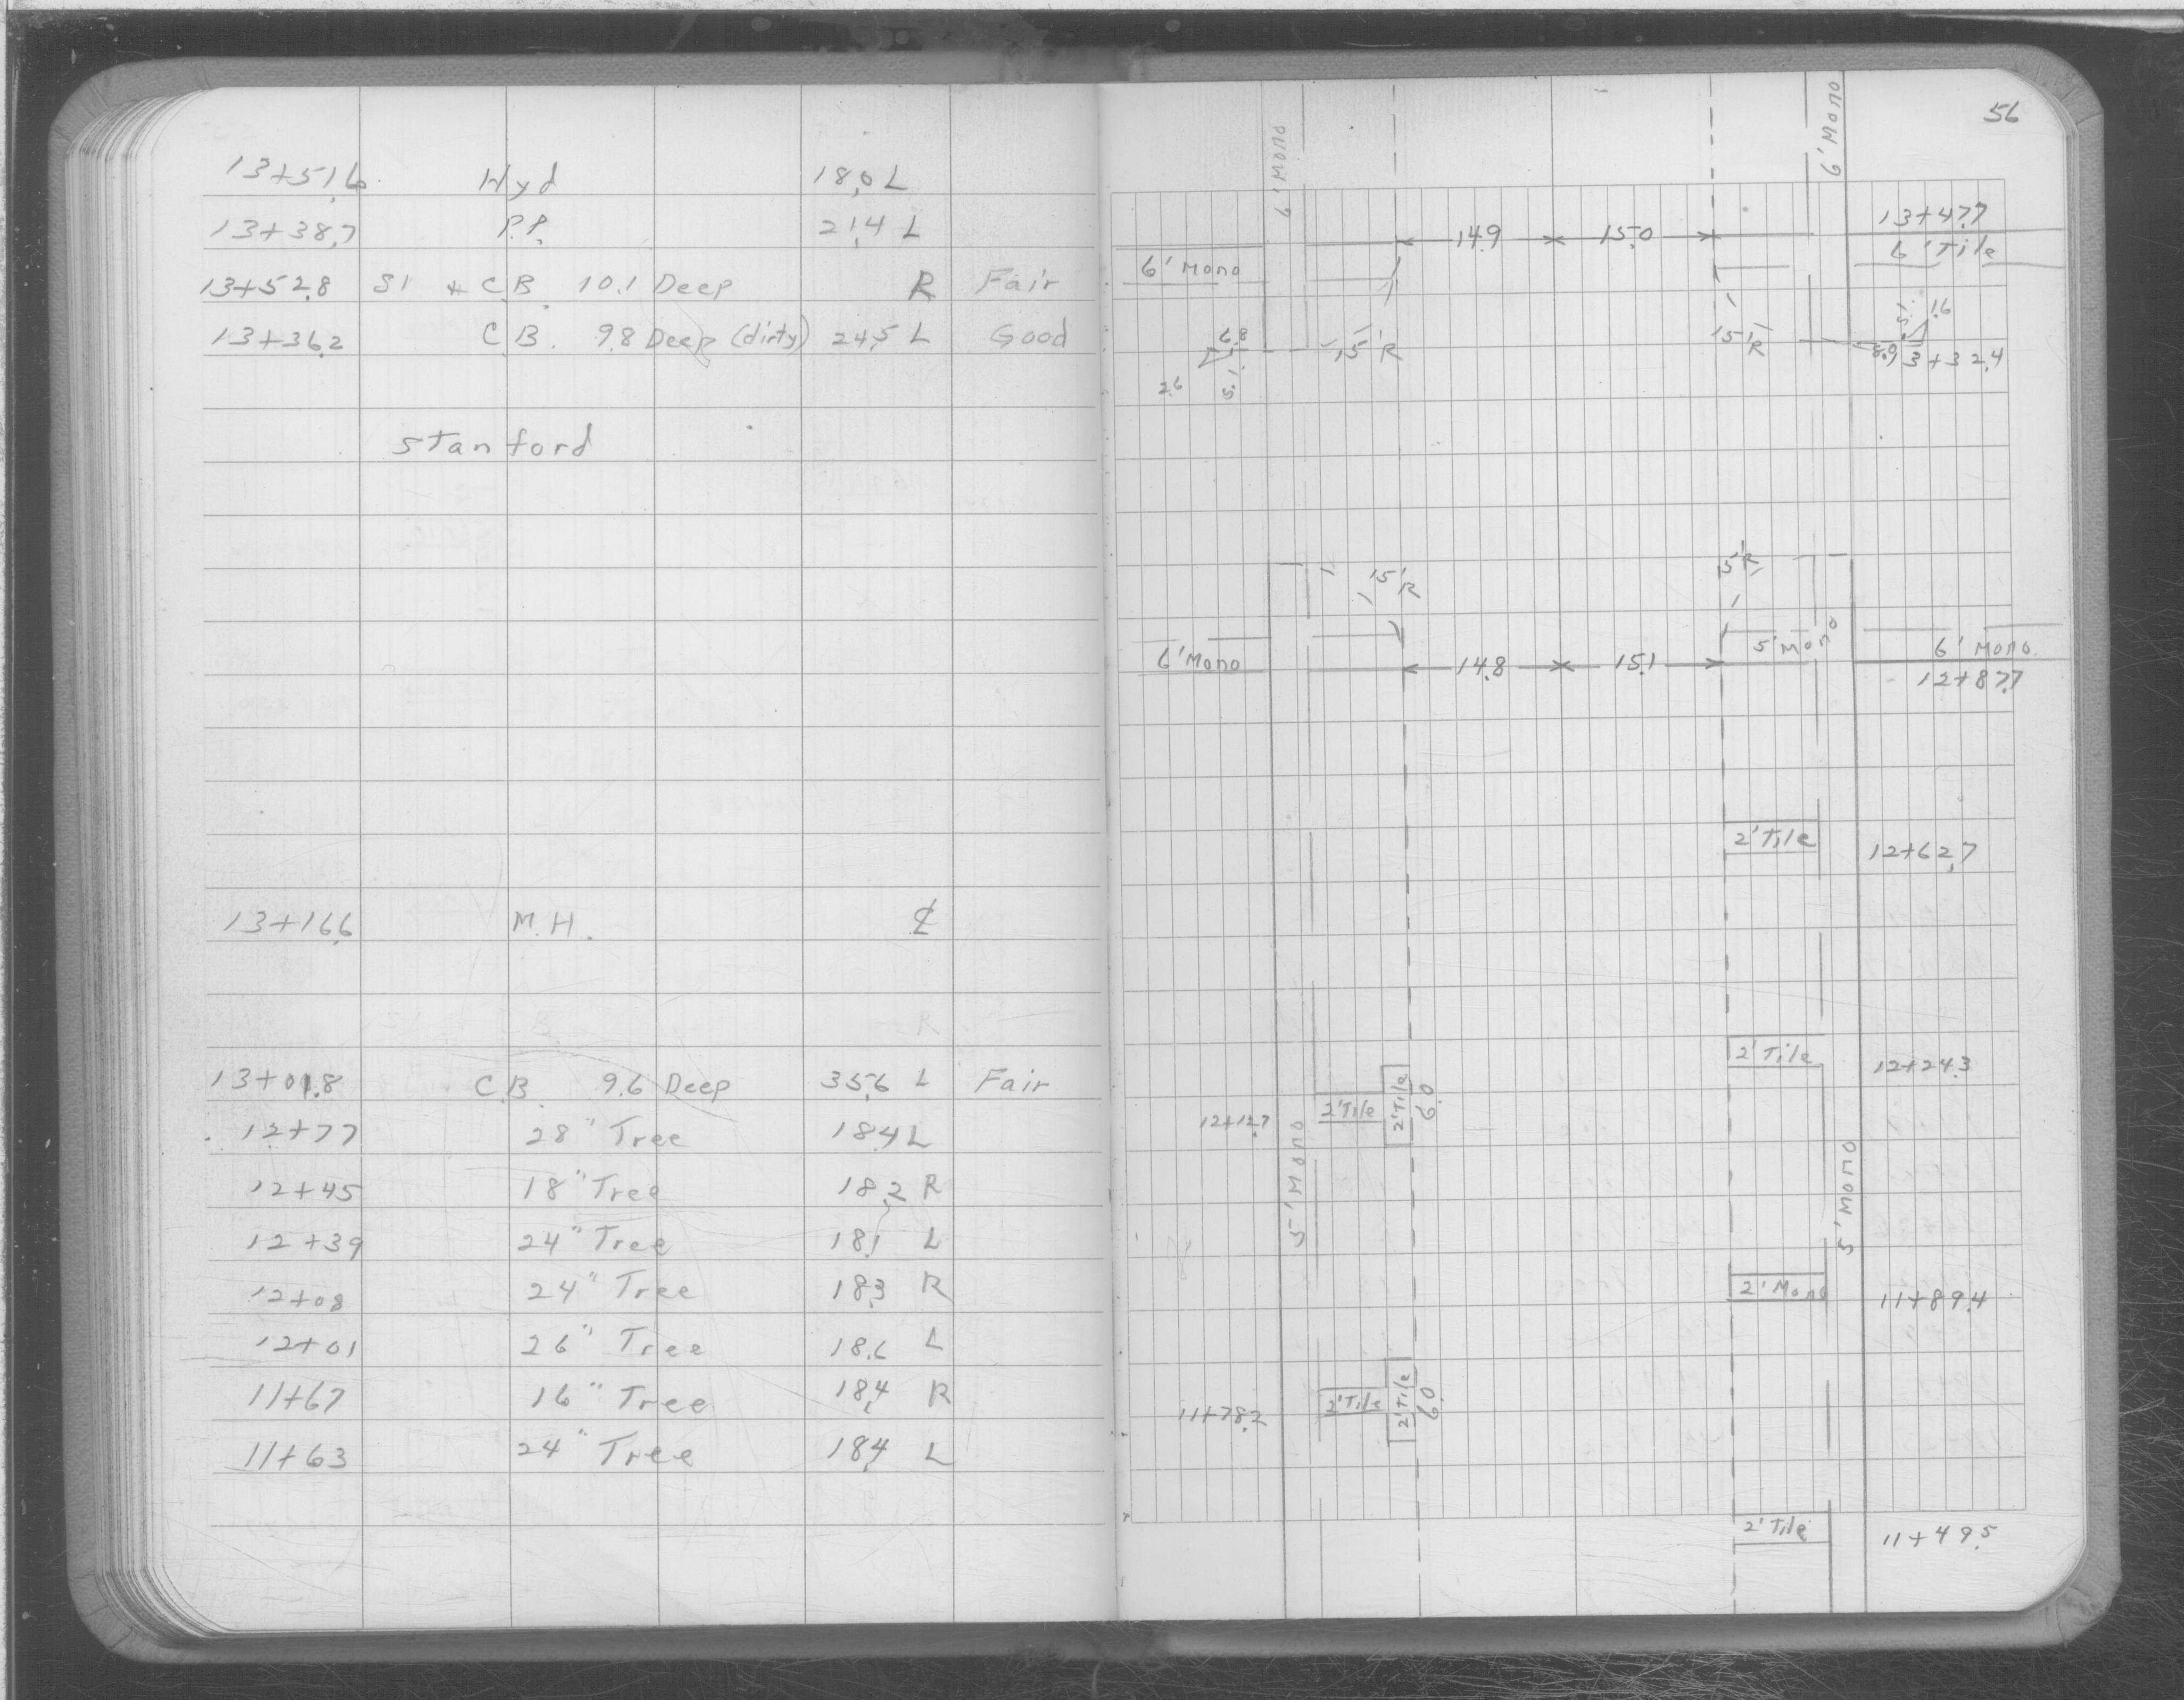 13+51.6 Hyd 18.0 L
13+38.7 P.P. 21.4 L
13+52.8 C.B. 10.1 Deep R Fair
13+36.2 C.B. 9.8 Deep (dirty) 24.5 L Good
Stanford
13+16.6 M.H. ℄
R
13+01.8 C.B. 9.6 Deep 35.6 L Fair
12+77 28" Tree 18.4 L
12+45 18" Tree 18.2 R
12+39 24" Tree 18.1 L
12+08 24" Tree 18.3 R
12+01 26" Tree 18.6 L
11+67 16" Tree 18.4 R
11+63 24" Tree 18.4 L
56
6' Mono
6' Mono
14.9 15.0 13+47.7
6' Mono 6' Tile
6.8 15' R 15' R 5.1 1.6
2.6 5.1 8.9 13+32.4
15' R 15' R
6' Mono 5' Mono 6' Mono
14.8 15.1 12+87.7
2' Tile 12+62.7
2' Tile 12+24.3
12+12.7 2' Tile 2' Tile 6.0
5' Mono 5' Mono
2' Mono 11+89.4
11+78.2 2' Tile 2' Tile 6.0
2' Tile 11+49.5